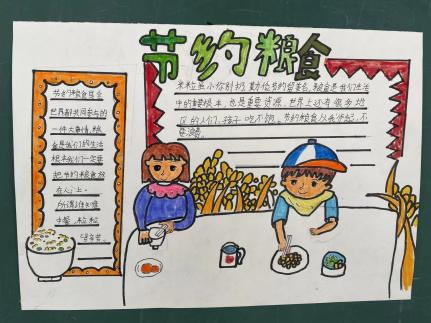 节约粮食
米粒虽小你别扔,勤俭节约留美名,粮食是我们生活
中的根本,也是重要资源,世界上还有很多地
区的人们、孩子吃不饱。节约粮食从我做起,不
要浪费。
节约粮食是全
世界都共同参与的
一件大事情,粮
食是我们的生活
根本我们一定要
把节约粮食放
在心上。
所谓:谁知盘
中餐,粒粒
皆辛苦。